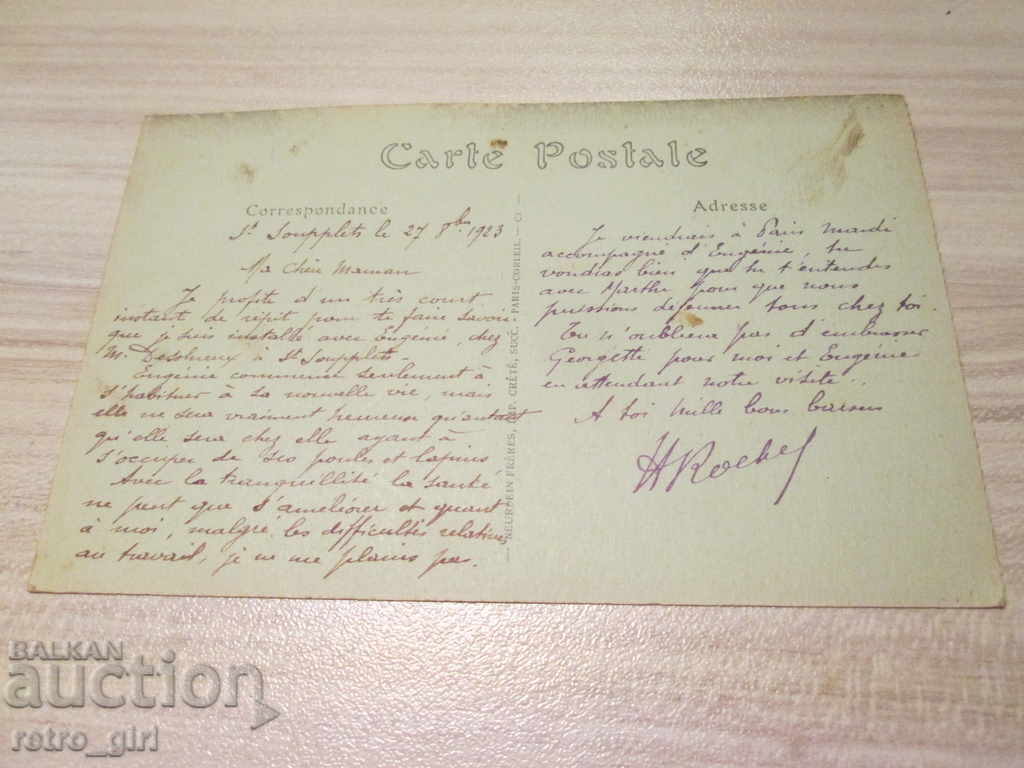 Carte Postale
Correspondance
St Soupplets le 27 8bre 1923
Ma Chère Maman
Je profite d'un très court
instant de répit pour te faire savoir
que je suis installé avec Eugénie, chez
M. à St Soupplets.
Eugénie commence seulement à
s'habituer à sa nouvelle vie, mais
elle ne sera vraiment heureuse qu'autant
qu'elle sera chez elle ayant à
s'occuper de ses poules et lapins
Avec la tranquillité la santé
ne peut que s'améliorer et quant
à moi, malgré les difficultés relatives
au travail, je ne me plains pas.
— NEURDEIN FRÈRES, IMP. CRÉTÉ, SUCC. PARIS-CORBEIL. — C. —
Adresse
Je viendrais à Paris mardi
accompagné d'Eugénie, tu
voudras bien que tu t'entendes
avec Marthe pour que nous
puissions déjeuner tous chez toi.
Tu n'oublieras pas d'embrasser
Georgette pour moi et Eugénie
en attendant notre visite..
A toi mille bons baisers
BALKAN
auction
retro_girl